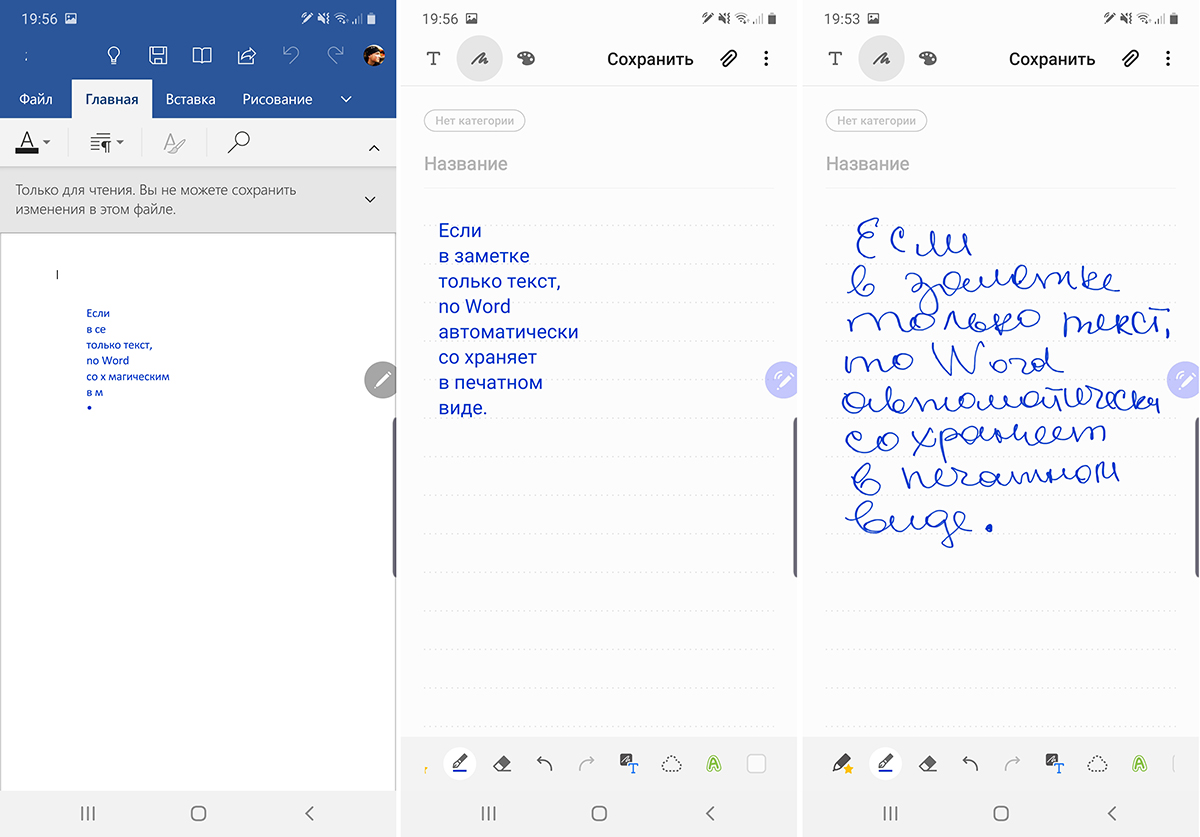 19:56
Файл Главная Вставка Рисование
Только для чтения. Вы не можете сохранить
изменения в этом файле.
Если
в се
только текст,
no Word
со х магическим
в м
•
19:56
T Сохранить
Нет категории
Название
Если
в заметке
только текст,
no Word
автоматически
со храняет
в печатном
виде.
19:53
T Сохранить
Нет категории
Название
Если
в заметке
только текст,
то Word
автоматически
сохраняет
в печатном
виде.